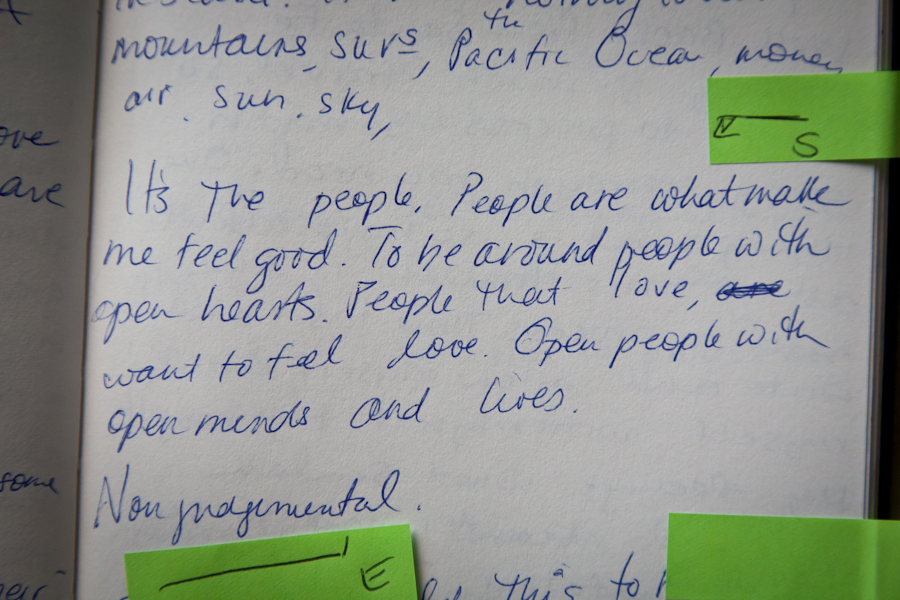 the
mountains, surs, Pacific Ocean, money
air, sun, sky,
S
ove
are
It's The people. People are what make
me feel good. To be around people with
open hearts. People that love, are
want to feel love. Open people with
open minds and lives.
some
Non judgemental.
E
this to